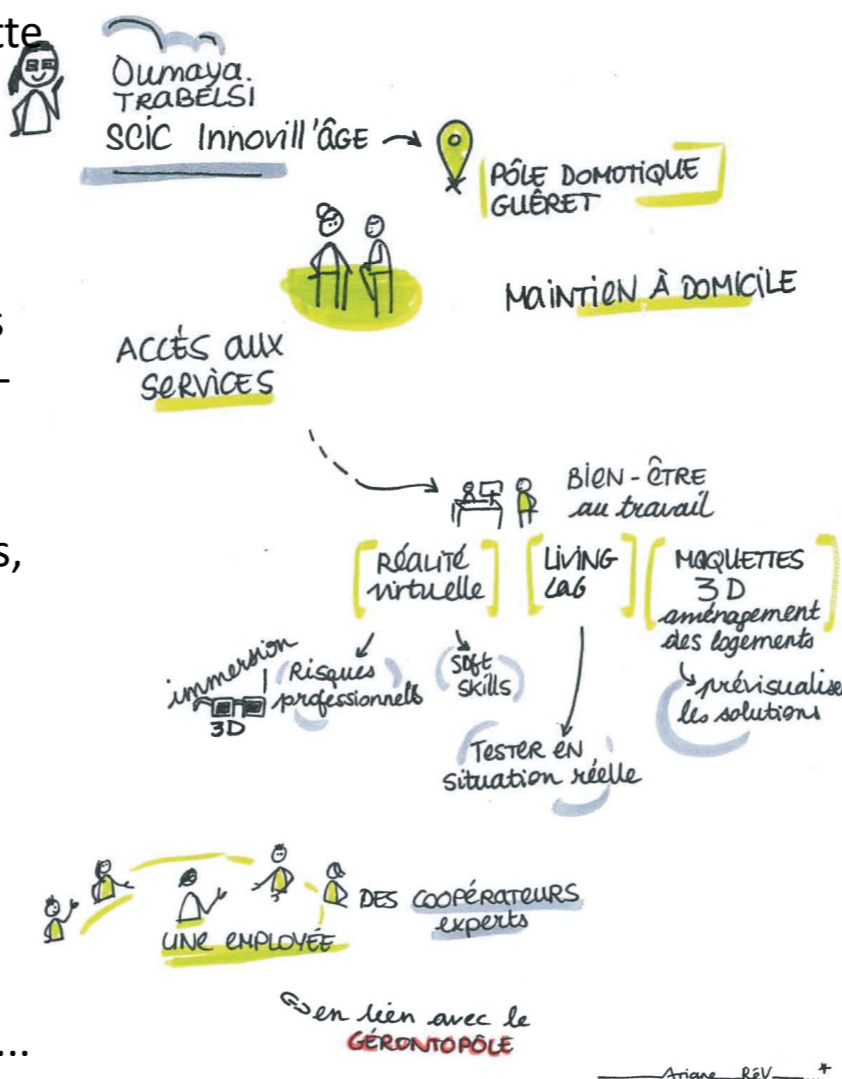 tte
Oumaya.
TRABELSI
SCIC Innovill'ÂGE
PÔLE DOMOTIQUE
GUÊRET
MAINTIEN À DOMICILE
s
ACCÈS AUX
SERVICES
–
BIEN-ÊTRE
au travail
s,
RÉALITÉ
virtuelle
LIVING
LAB
MAQUETTES
3D
aménagement
des logements
immersion
3D
Risques
professionnels
SOFT
SKILLS
prévisualise
les solutions
TESTER EN
situation réelle
UNE EMPLOYÉE
DES COOPÉRATEURS
experts
en lien avec le
GÉRONTOPÔLE
...
Ariane RêV